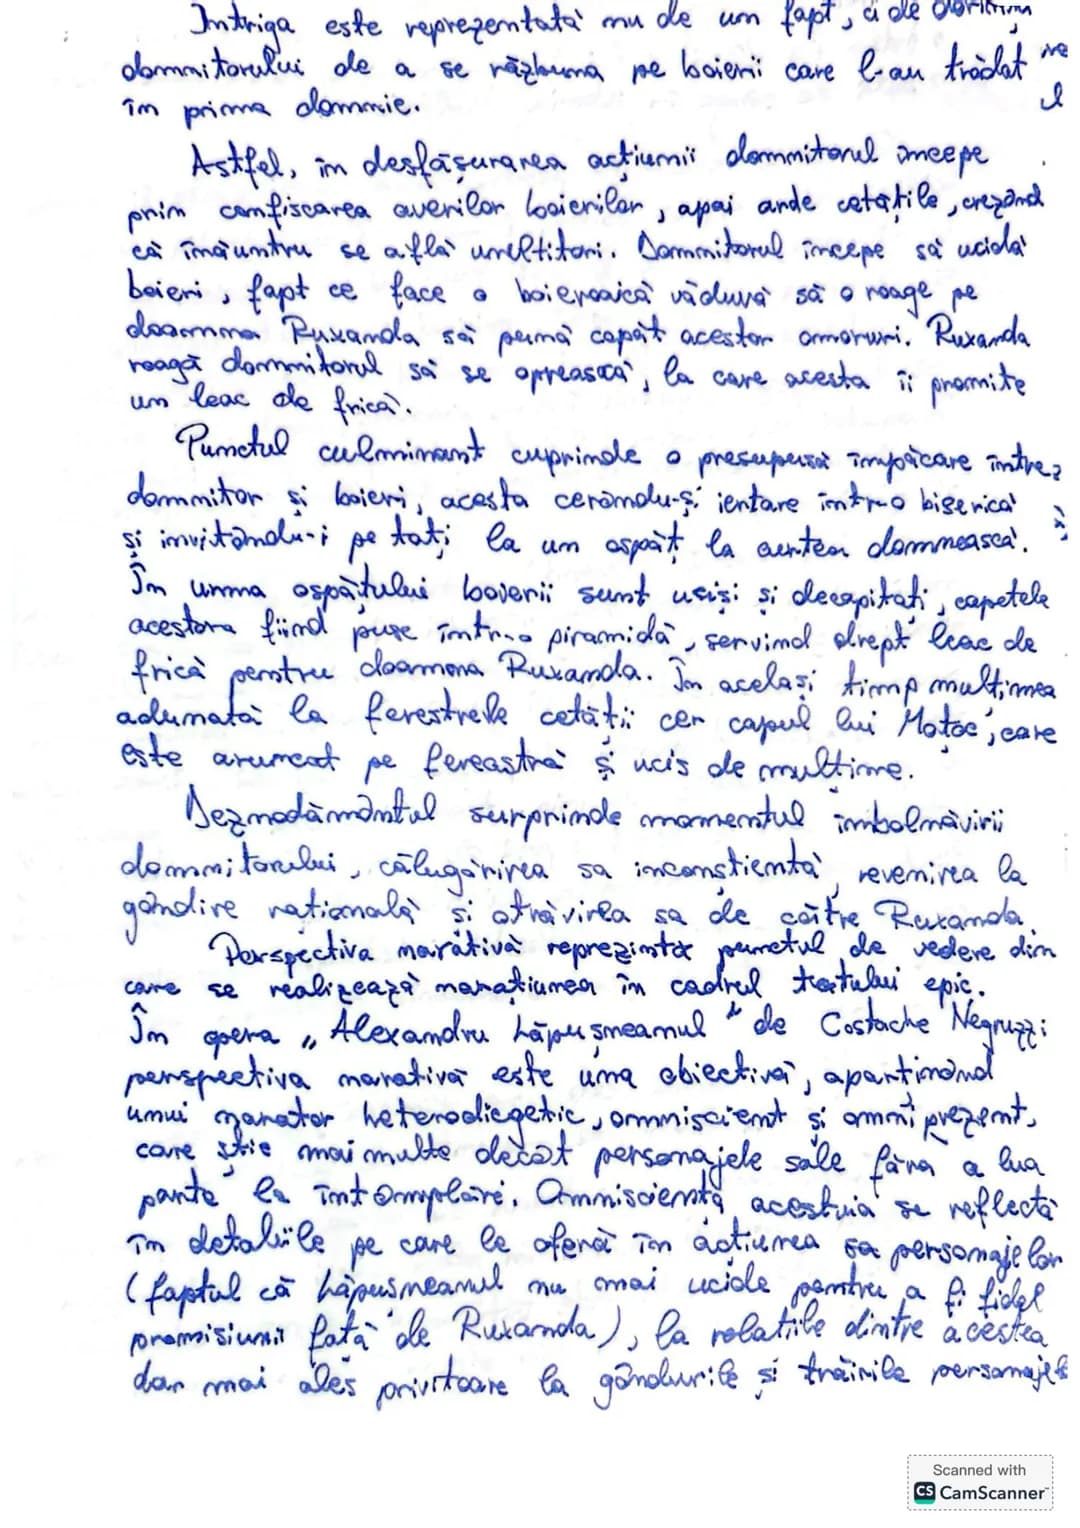 Intriga este reprezentată nu de un fapt, ci de dorința
domnitorului de a se răzbuna pe boierii care l-au trădat
în prima domnie.
Astfel, în desfășurarea acțiunii domnitorul începe
prin confiscarea averilor boierilor, apoi arde cetățile, crezând
că înăuntru se află uneltitori. Domnitorul începe să ucidă
boieri, fapt ce face o boieroaică văduvă să o roage pe
doamna Ruxanda să pună capăt acestor omoruri. Ruxanda
roagă domnitorul să se oprească, la care acesta îi promite
un leac de frică.
Punctul culminant cuprinde o presupusă împăcare între
domnitor și boieri, acesta cerându-și iertare într-o biserică
și invitându-i pe toți la un ospăț la curtea domnească.
În urma ospățului boierii sunt uciși și decapitați, capetele
acestora fiind puse într-o piramidă, servind drept leac de
frică pentru doamna Ruxanda. În același timp mulțimea
adunată la ferestrele cetății cer capul lui Moțoc, care
este aruncat pe fereastră și ucis de mulțime.
Deznodământul surprinde momentul îmbolnăvirii
domnitorului, călugărirea sa inconștientă, revenirea la
gândire rațională și otrăvirea sa de către Ruxanda.
Perspectiva narativă reprezintă punctul de vedere din
care se realizează narațiunea în cadrul textului epic.
În opera „Alexandru Lăpușneanul" de Costache Negruzzi
perspectiva narativă este una obiectivă, aparținând
unui narator heterodiegetic, omniscient și omniprezent,
care știe mai multe decât personajele sale fără a lua
parte la întâmplări. Omnisciența acestuia se reflectă
în detaliile pe care le oferă în acțiunea sa personajelor
(faptul că Lăpușneanul nu mai ucide pentru a fi fidel
promisiunii față de Ruxanda), la relațiile dintre acestea
dar mai ales privitoare la gândurile și trăirile personajelor
Scanned with
CS CamScanner